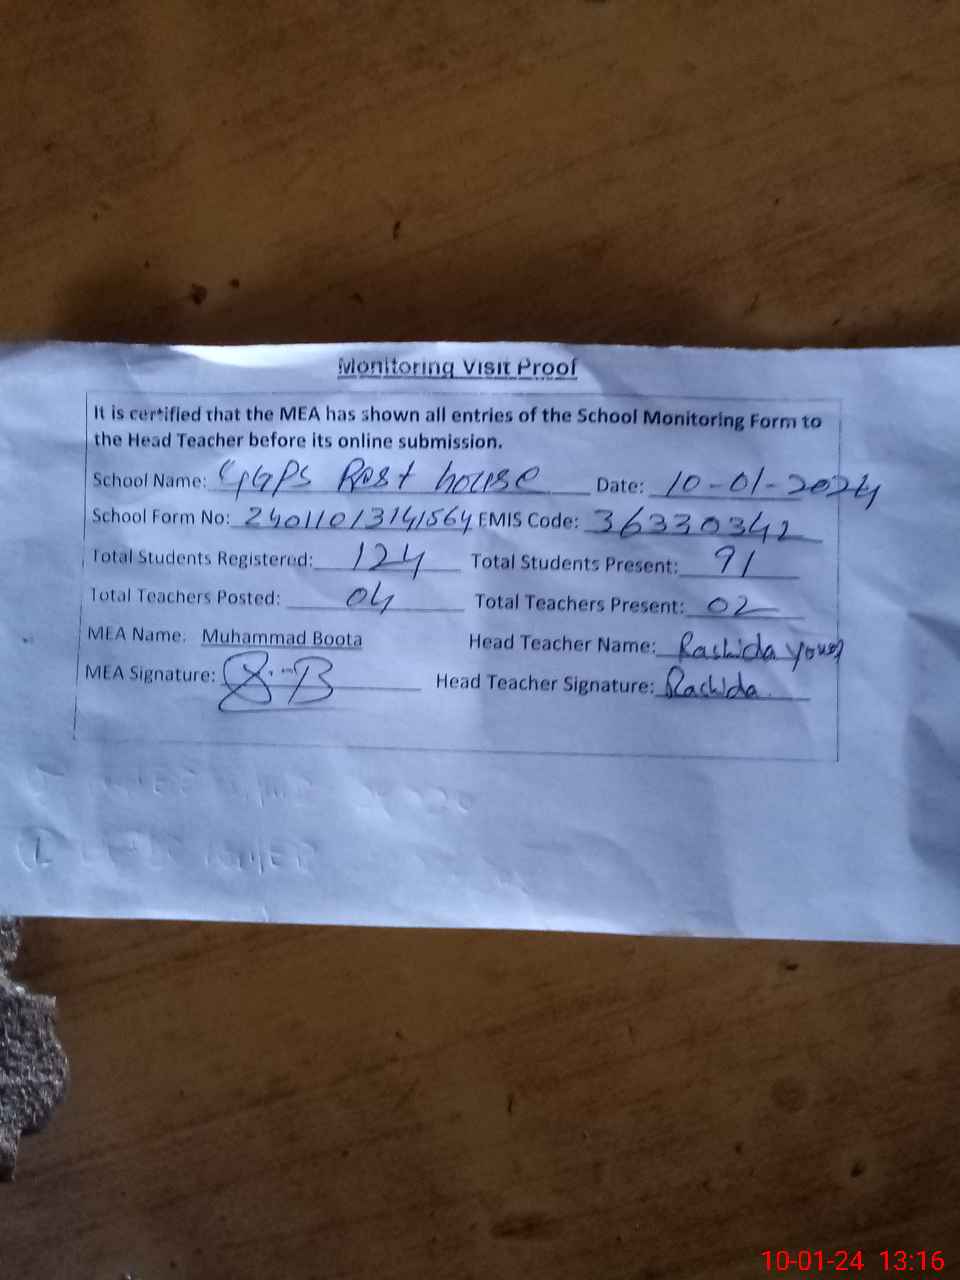 Monitoring Visit Proof
It is certified that the MEA has shown all entries of the School Monitoring Form to
the Head Teacher before its online submission.
School Name: GGPS Rest house Date: 10-01-2024
School Form No: 24011013141564 EMIS Code: 36330342
Total Students Registered: 124 Total Students Present: 91
Total Teachers Posted: 04 Total Teachers Present: 02
MEA Name: Muhammad Boota Head Teacher Name: Rashida
MEA Signature: Head Teacher Signature: Rashida
10-01-24 13:16